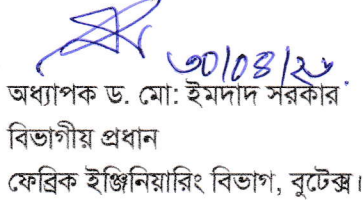 ৩০/০৪/২৬.
অধ্যাপক ড. মো: ইমদাদ সরকার
বিভাগীয় প্রধান
ফেব্রিক ইঞ্জিনিয়ারিং বিভাগ, বুটেক্স।